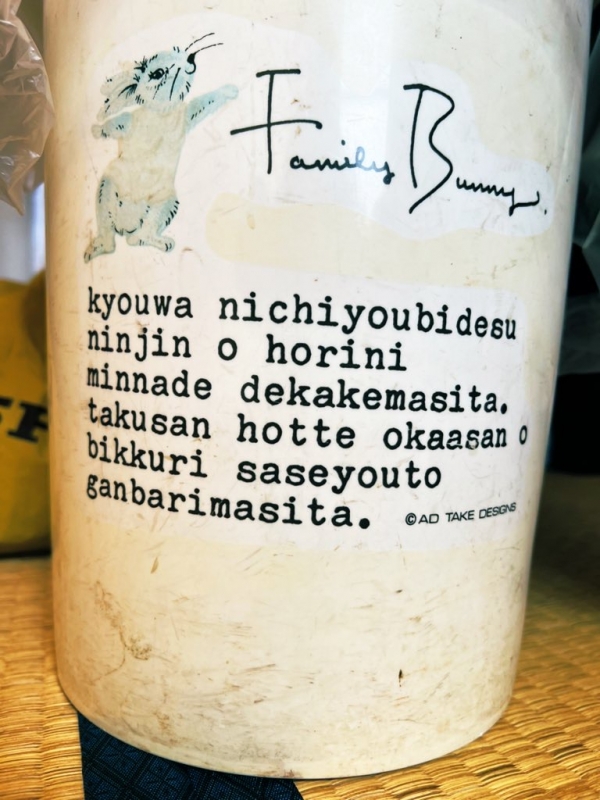 Family Bunny.
kyouwa nichiyoubidesu
ninjin o horini
minnade dekakemasita.
takusan hotte okaasan o
bikkuri saseyouto
ganbarimasita.
©AD TAKE DESIGNS